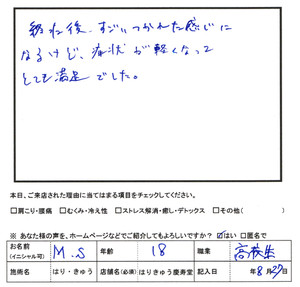 終わった後、すごいつかれた感じに
なるけど、症状が軽くなって
とても満足でした。
本日、ご来店された理由に当てはまる項目をチェックしてください。
□肩こり・腰痛 □むくみ・冷え性 □ストレス解消・癒し・デトックス □その他( )
※ あなた様の声を、ホームページなどでご紹介してもよろしいですか？ ☑はい □匿名で
お名前 (イニシャル可) M.S 年齢 18 職業 高校生
施術名 はり・きゅう 店舗名(必須) はりきゅう慶寿堂 記入日 年8月27日